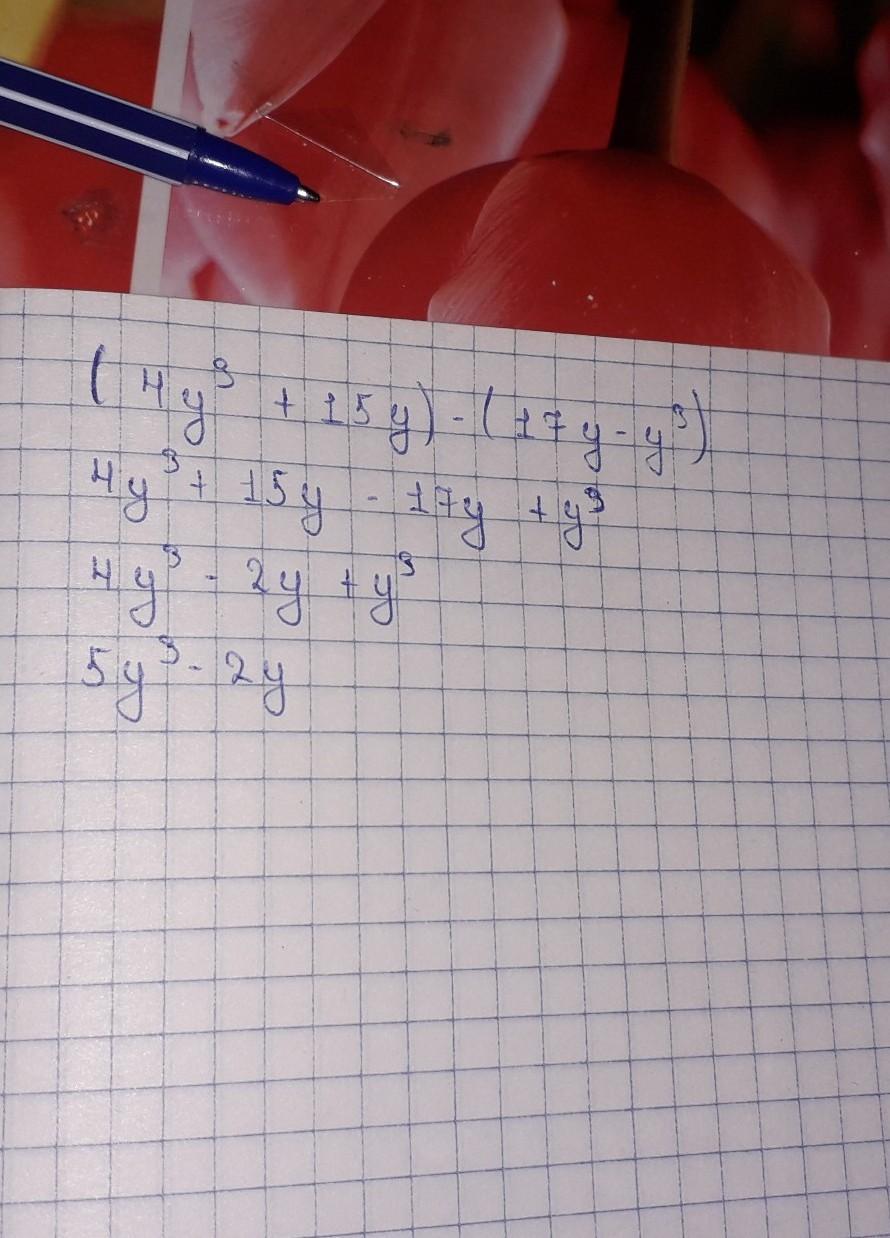 (4y³ + 15y) - (17y - y³)
4y³ + 15y - 17y + y³
4y³ - 2y + y³
5y³ - 2y